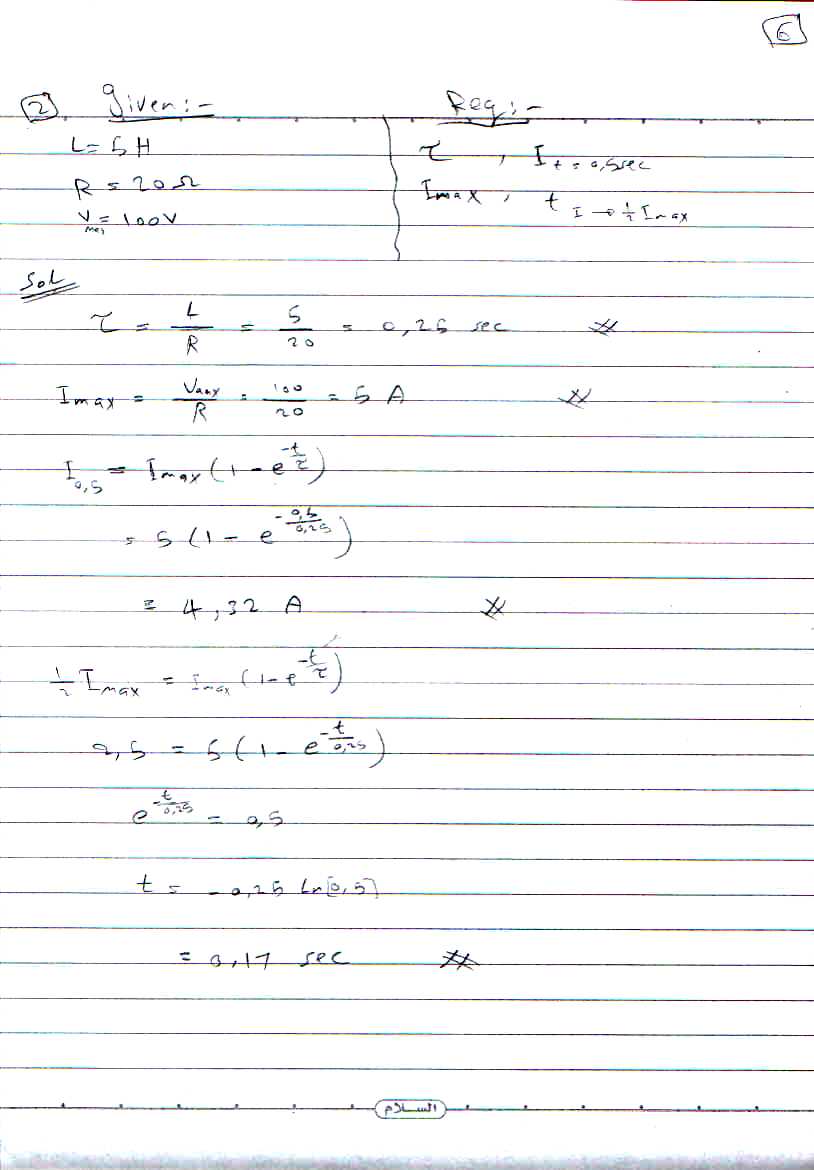 6
2. Given:- Req:-
L = 5 H τ , I t = 0,5 sec
R = 20 Ω Imax , t I → ½ Imax
V = 100 V
Sol
τ = L/R = 5/20 = 0,25 sec #
Imax = Vmax/R = 100/20 = 5 A #
I0,5 = Imax (1 - e^(-t/τ))
= 5 (1 - e^(-0,5/0,25))
= 4,32 A #
½ Imax = Imax (1 - e^(-t/τ))
= 5 (1 - e^(-t/0,25))
e^(-t/0,25) = 0,5
t = - 0,25 Ln[0,5]
= 0,17 sec #
السلام